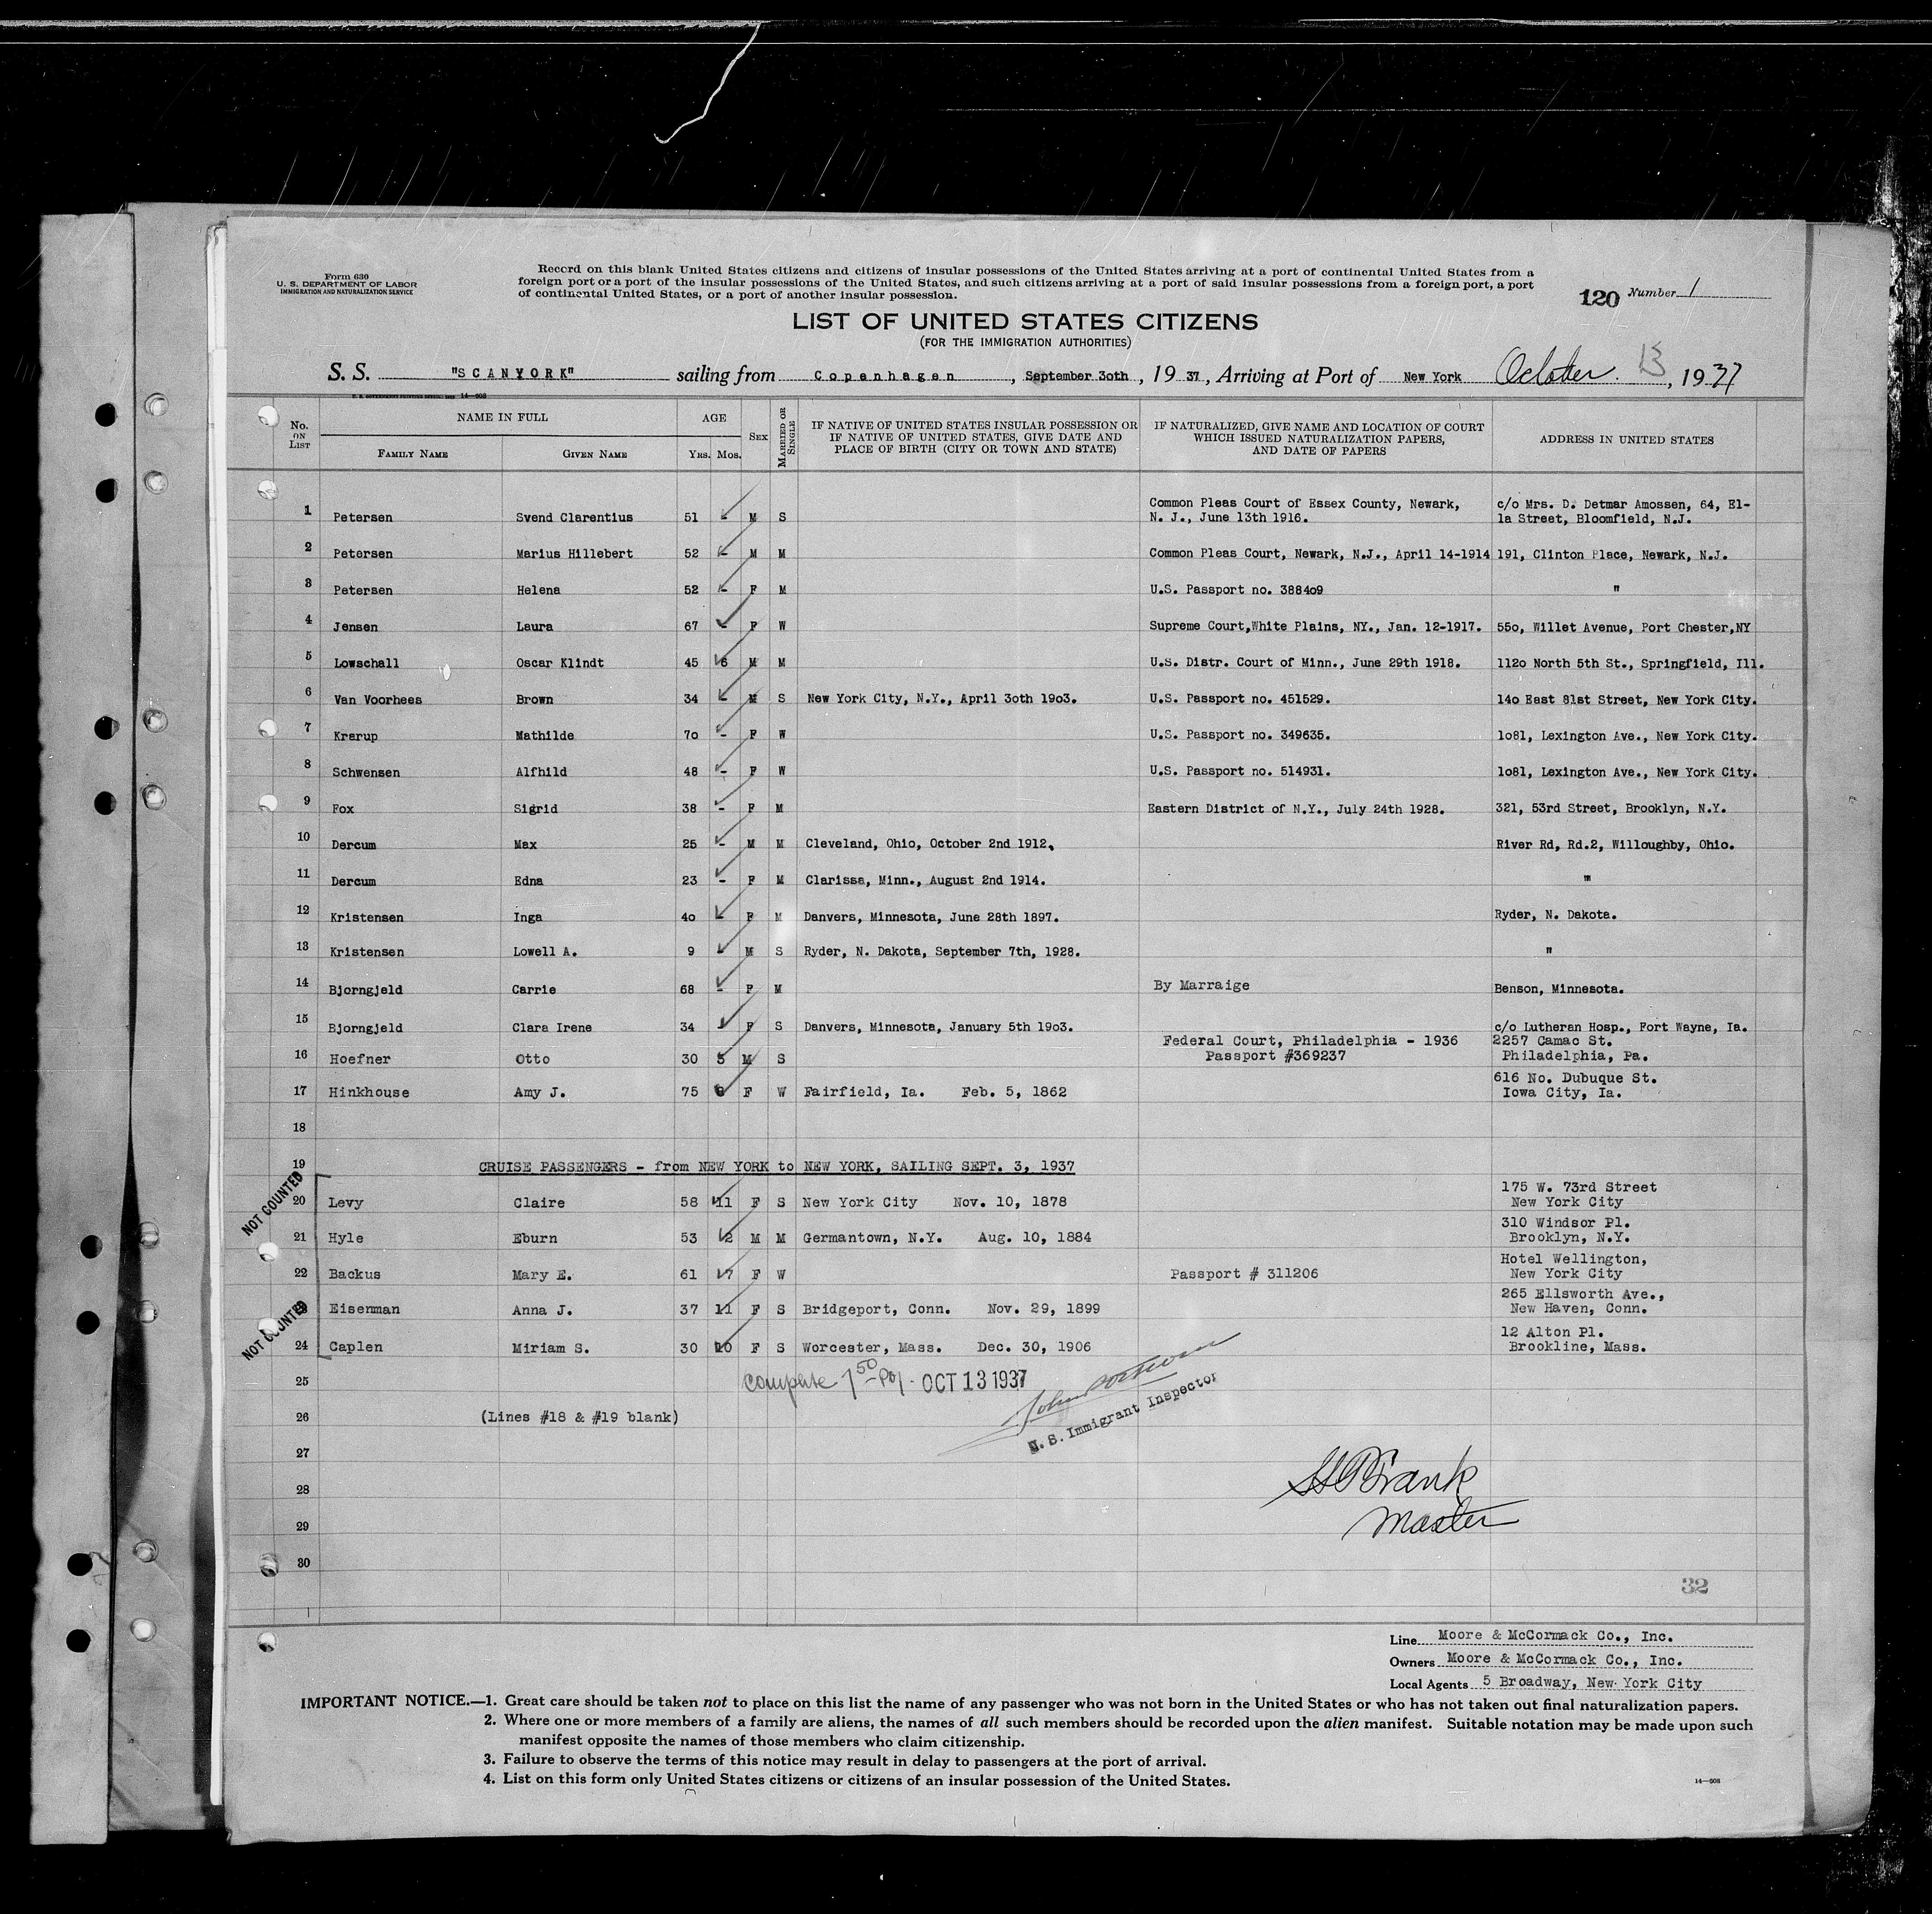 Form 630
U. S. DEPARTMENT OF LABOR
IMMIGRATION AND NATURALIZATION SERVICE
Record on this blank United States citizens and citizens of insular possessions of the United States arriving at a port of continental United States from a
foreign port or a port of the insular possessions of the United States, and such citizens arriving at a port of said insular possessions from a foreign port, a port
of continental United States, or a port of another insular possession.
120 Number 1
LIST OF UNITED STATES CITIZENS
(FOR THE IMMIGRATION AUTHORITIES)
S. S. "SCANYORK" sailing from Copenhagen, September 3oth, 19 37, Arriving at Port of New York October 13, 1937
No. ON LIST
NAME IN FULL
FAMILY NAME
GIVEN NAME
AGE
YRS. MOS.
SEX
MARRIED OR SINGLE
IF NATIVE OF UNITED STATES INSULAR POSSESSION OR
IF NATIVE OF UNITED STATES, GIVE DATE AND
PLACE OF BIRTH (CITY OR TOWN AND STATE)
IF NATURALIZED, GIVE NAME AND LOCATION OF COURT
WHICH ISSUED NATURALIZATION PAPERS,
AND DATE OF PAPERS
ADDRESS IN UNITED STATES
Common Pleas Court of Essex County, Newark, c/o Mrs. D. Detmar Amossen, 64, El-
1 Petersen Svend Clarentius 51 - M S N. J., June 13th 1916. la Street, Bloomfield, N.J.
2 Petersen Marius Hillebert 52 - M M Common Pleas Court, Newark, N.J., April 14-1914 191, Clinton Place, Newark, N.J.
3 Petersen Helena 52 - F M U.S. Passport no. 3884o9 "
4 Jensen Laura 67 - F W Supreme Court,White Plains, NY., Jan. 12-1917. 55o, Willet Avenue, Port Chester,NY
5 Lowschall Oscar Klindt 45 6 M M U.S. Distr. Court of Minn., June 29th 1918. 112o North 5th St., Springfield, Ill.
6 Van Voorhees Brown 34 - M S New York City, N.Y., April 3oth 19o3. U.S. Passport no. 451529. 14o East 81st Street, New York City.
7 Krarup Mathilde 7o - F W U.S. Passport no. 349635. 1o81, Lexington Ave., New York City.
8 Schwensen Alfhild 48 - F W U.S. Passport no. 514931. 1o81, Lexington Ave., New York City.
9 Fox Sigrid 38 - F M Eastern District of N.Y., July 24th 1928. 321, 53rd Street, Brooklyn, N.Y.
10 Dercum Max 25 - M M Cleveland, Ohio, October 2nd 1912. River Rd, Rd.2, Willoughby, Ohio.
11 Dercum Edna 23 - F M Clarissa, Minn., August 2nd 1914. "
12 Kristensen Inga 4o - F M Danvers, Minnesota, June 28th 1897. Ryder, N. Dakota.
13 Kristensen Lowell A. 9 - M S Ryder, N. Dakota, September 7th, 1928. "
14 Bjorngjeld Carrie 68 - F M By Marraige Benson, Minnesota.
15 Bjorngjeld Clara Irene 34 - F S Danvers, Minnesota, January 5th 19o3. c/o Lutheran Hosp., Fort Wayne, Ia.
Federal Court, Philadelphia - 1936 2257 Camac St.
16 Hoefner Otto 30 5 M S Passport #369237 Philadelphia, Pa.
616 No. Dubuque St.
17 Hinkhouse Amy J. 75 8 F W Fairfield, Ia. Feb. 5, 1862 Iowa City, Ia.
18
19 CRUISE PASSENGERS - from NEW YORK to NEW YORK, SAILING SEPT. 3, 1937
NOT COUNTED
175 W. 73rd Street
20 Levy Claire 58 11 F S New York City Nov. 10, 1878 New York City
310 Windsor Pl.
21 Hyle Eburn 53 2 M M Germantown, N.Y. Aug. 10, 1884 Brooklyn, N.Y.
Hotel Wellington,
22 Backus Mary E. 61 7 F W Passport # 311206 New York City
265 Ellsworth Ave.,
23 Eisenman Anna J. 37 11 F S Bridgeport, Conn. Nov. 29, 1899 New Haven, Conn.
NOT COUNTED
12 Alton Pl.
24 Caplen Miriam S. 30 10 F S Worcester, Mass. Dec. 30, 1906 Brookline, Mass.
25 Complete OCT 13 1937
U. S. Immigrant Inspector
26 (Lines #18 & #19 blank)
27
28
29
30
Master
32
Line Moore & McCormack Co., Inc.
Owners Moore & McCormack Co., Inc.
Local Agents 5 Broadway, New York City
IMPORTANT NOTICE.—1. Great care should be taken not to place on this list the name of any passenger who was not born in the United States or who has not taken out final naturalization papers.
2. Where one or more members of a family are aliens, the names of all such members should be recorded upon the alien manifest. Suitable notation may be made upon such
manifest opposite the names of those members who claim citizenship.
3. Failure to observe the terms of this notice may result in delay to passengers at the port of arrival.
4. List on this form only United States citizens or citizens of an insular possession of the United States.
14—608